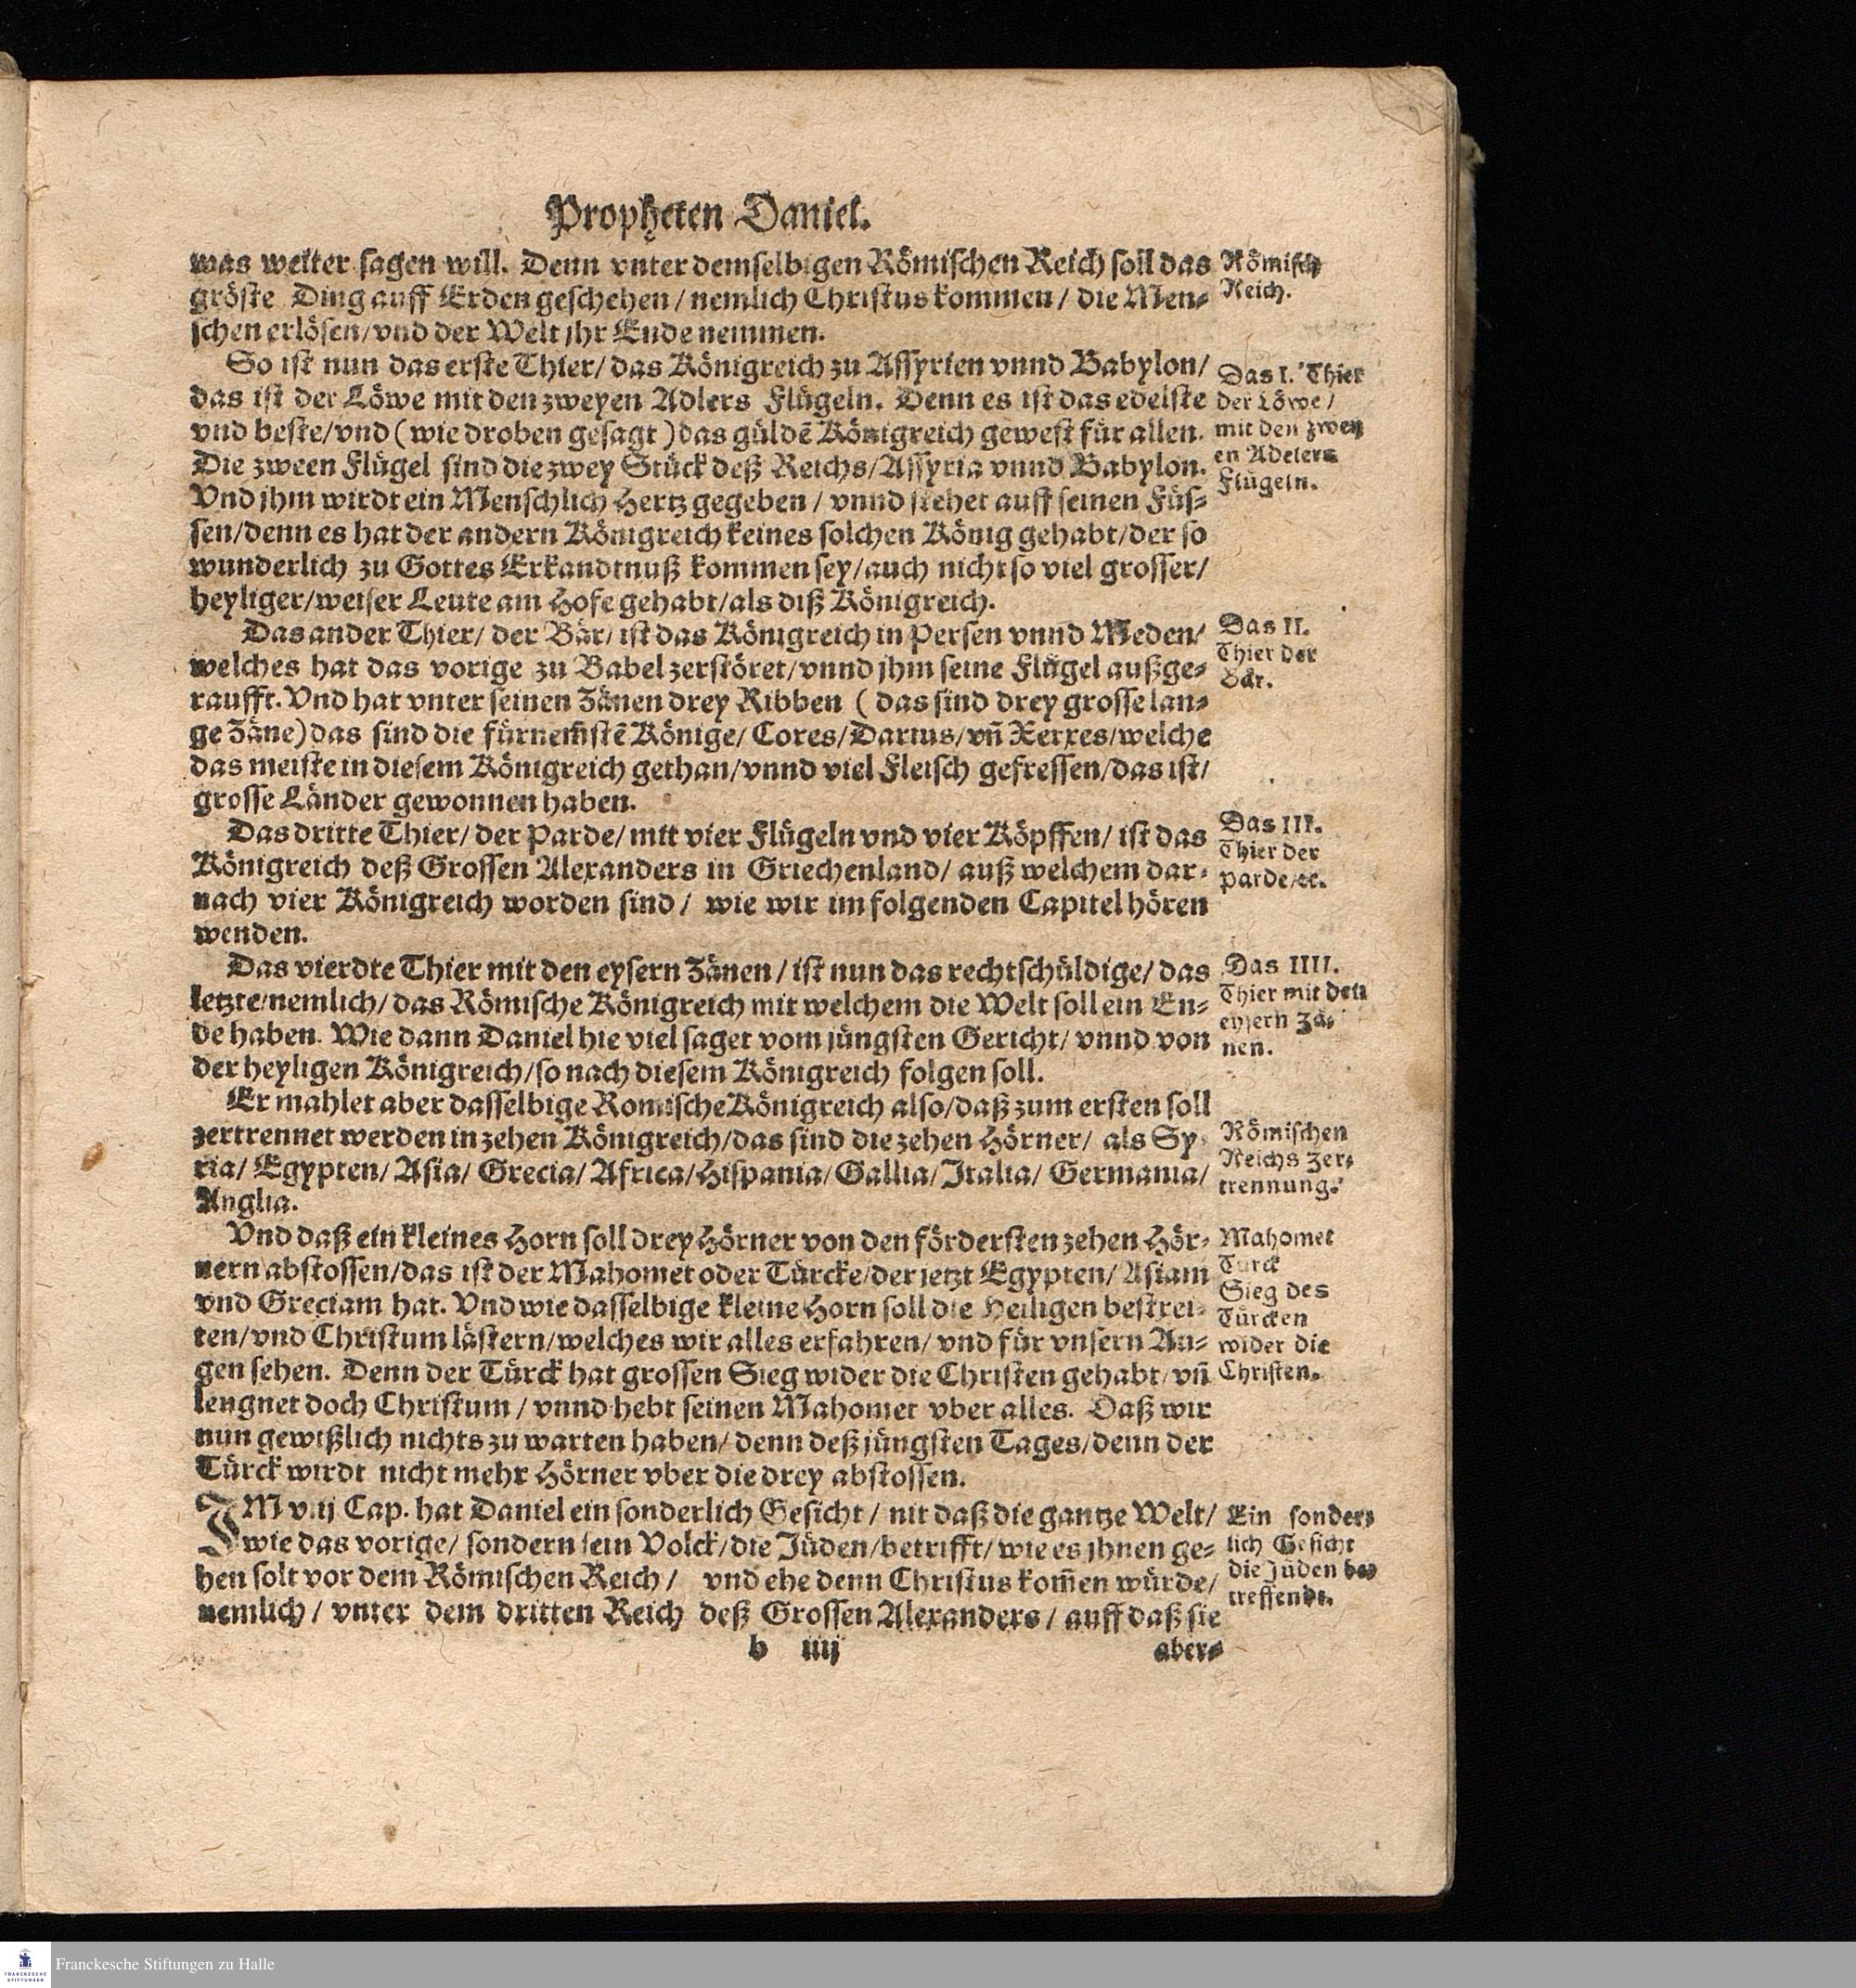 Propheten Daniel.
was weiter sagen will. Denn vnter demselbigen Römischen Reich soll das
gröste Ding auff Erden geschehen / nemlich Christus kommen / die Men-
schen erlösen/vnd der Welt jhr Ende nemmen.
Römisch
Reich.
So ist nun das erste Thier/ das Königreich zu Assyrien vnnd Babylon/
das ist der Löwe mit den zweyen Adlers Flügeln. Denn es ist das edelste
vnd beste/vnd (wie droben gesagt) das güldē Königreich gewest für allen.
Die zween Flügel sind die zwey Stück deß Reichs/Assyria vnnd Babylon.
Vnd jhm wirdt ein Menschlich Hertz gegeben / vnnd stehet auff seinen Füs-
sen/denn es hat der andern Königreich keines solchen König gehabt/der so
wunderlich zu Gottes Erkandtnuß kommen sey/auch nicht so viel grosser/
heyliger/weiser Leute am Hofe gehabt/als diß Königreich.
Das I. Thier
der Löwe /
mit den zwey
en Adelers
Flügeln.
Das ander Thier/ der Bär/ ist das Königreich in Persen vnnd Meden/
welches hat das vorige zu Babel zerstöret/vnnd jhm seine Flügel außge-
raufft. Vnd hat vnter seinen Zänen drey Ribben ( das sind drey grosse lan-
ge Zäne) das sind die fürnem̄stē Könige/ Cores/Darius/vn̄ Xerxes/welche
das meiste in diesem Königreich gethan/vnnd viel Fleisch gefressen/das ist/
grosse Länder gewonnen haben.
Das II.
Thier der
Bär.
Das dritte Thier/ der Parde/ mit vier Flügeln vnd vier Köpffen/ ist das
Königreich deß Grossen Alexanders in Griechenland/ auß welchem dar-
nach vier Königreich worden sind / wie wir im folgenden Capitel hören
wenden.
Das III.
Thier der
Parde/ec.
Das vierdte Thier mit den eysern Zänen / ist nun das rechtschüldige/ das
letzte/nemlich/das Römische Königreich mit welchem die Welt soll ein En-
de haben. Wie dann Daniel hie viel saget vom jüngsten Gericht/ vnnd von
der heyligen Königreich/so nach diesem Königreich folgen soll.
Das IIII.
Thier mit den
eysern Zä-
nen.
Er mahlet aber dasselbige Romische Königreich also/daß zum ersten soll
zertrennet werden in zehen Königreich/das sind die zehen Hörner/ als Sy-
ria/ Egypten/ Asia/ Grecia/ Africa/Hispania/Gallia/Italia/ Germania/
Anglia.
Römischen
Reichs Zer-
trennung.
Vnd daß ein kleines Horn soll drey Hörner von den fördersten zehen Hör-
nern abstossen/das ist der Mahomet oder Türcke/der jetzt Egypten/ Asiam
vnd Greciam hat. Vnd wie dasselbige kleine Horn soll die Heiligen bestrei-
ten/vnd Christum lästern/welches wir alles erfahren/ vnd für vnsern Au-
gen sehen. Denn der Türck hat grossen Sieg wider die Christen gehabt/ vn̄
leugnet doch Christum / vnnd hebt seinen Mahomet vber alles. Daß wir
nun gewißlich nichts zu warten haben/ denn deß jüngsten Tages/denn der
Türck wirdt nicht mehr Hörner vber die drey abstossen.
Mahomet
Türck
Sieg des
Türcken
wider die
Christen.
IM viij Cap. hat Daniel ein sonderlich Gesicht / nit daß die gantze Welt/
wie das vorige/ sondern sein Volck/die Jüden/betrifft/ wie es jhnen ge-
hen solt vor dem Römischen Reich / vnd ehe denn Christus kom̄en würde/
nemlich / vnter dem dritten Reich deß Grossen Alexanders / auff daß sie
Ein sonder-
lich Gesicht
die Jüden be-
treffendt.
b iiij
aber-
FRANCKESCHE
STIFTUNGEN
Franckesche Stiftungen zu Halle